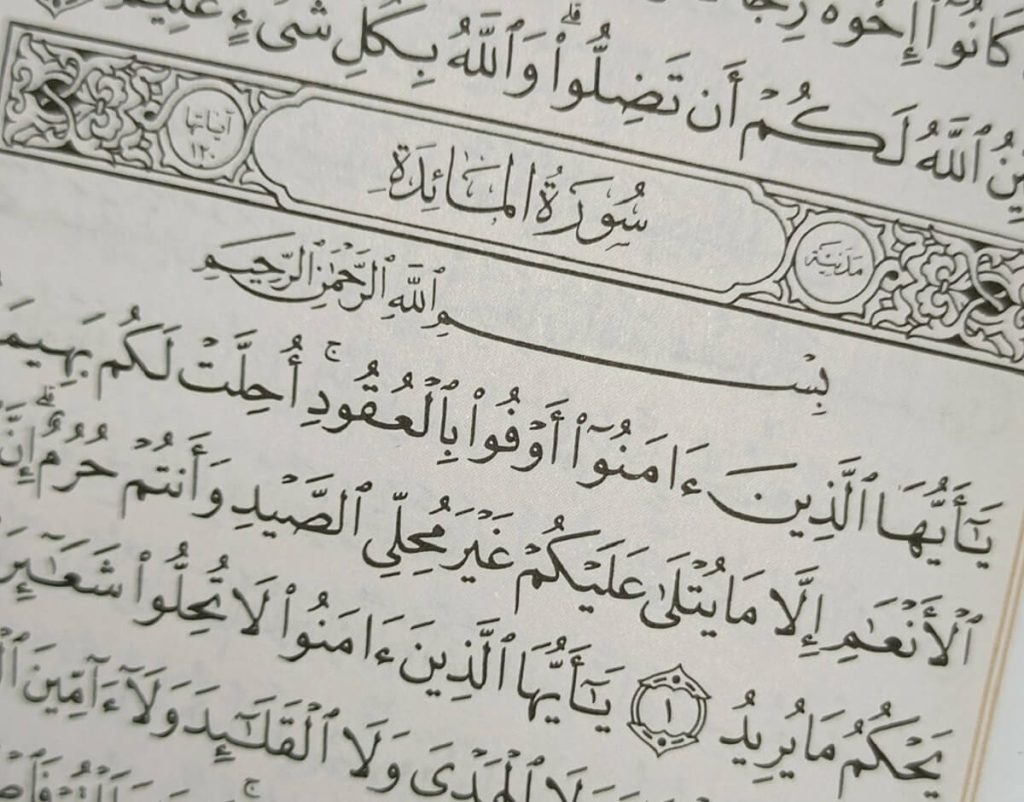 كَانُوٓا۟ إِخْوَةً
ٱللَّهُ لَكُمْ أَن تَضِلُّوا۟ ۗ وَٱللَّهُ بِكُلِّ شَىْءٍ
مَدَنِيَّة سُورَةُ المَائِدَةِ آياتها ١٢٠
بِسْمِ ٱللَّهِ ٱلرَّحْمَٰنِ ٱلرَّحِيمِ
يَٰٓأَيُّهَا ٱلَّذِينَ ءَامَنُوٓا۟ أَوْفُوا۟ بِٱلْعُقُودِ ۚ أُحِلَّتْ لَكُم
ٱلْأَنْعَٰمِ إِلَّا مَا يُتْلَىٰ عَلَيْكُمْ غَيْرَ مُحِلِّى ٱلصَّيْدِ وَأَنتُمْ حُرُمٌ ۗ إِنَّ
يَحْكُمُ مَا يُرِيدُ ١ يَٰٓأَيُّهَا ٱلَّذِينَ ءَامَنُوا۟ لَا تُحِلُّوا۟
وَلَا ٱلْهَدْىَ وَلَا ٱلْقَلَٰٓئِدَ وَلَآ ءَآمِّينَ